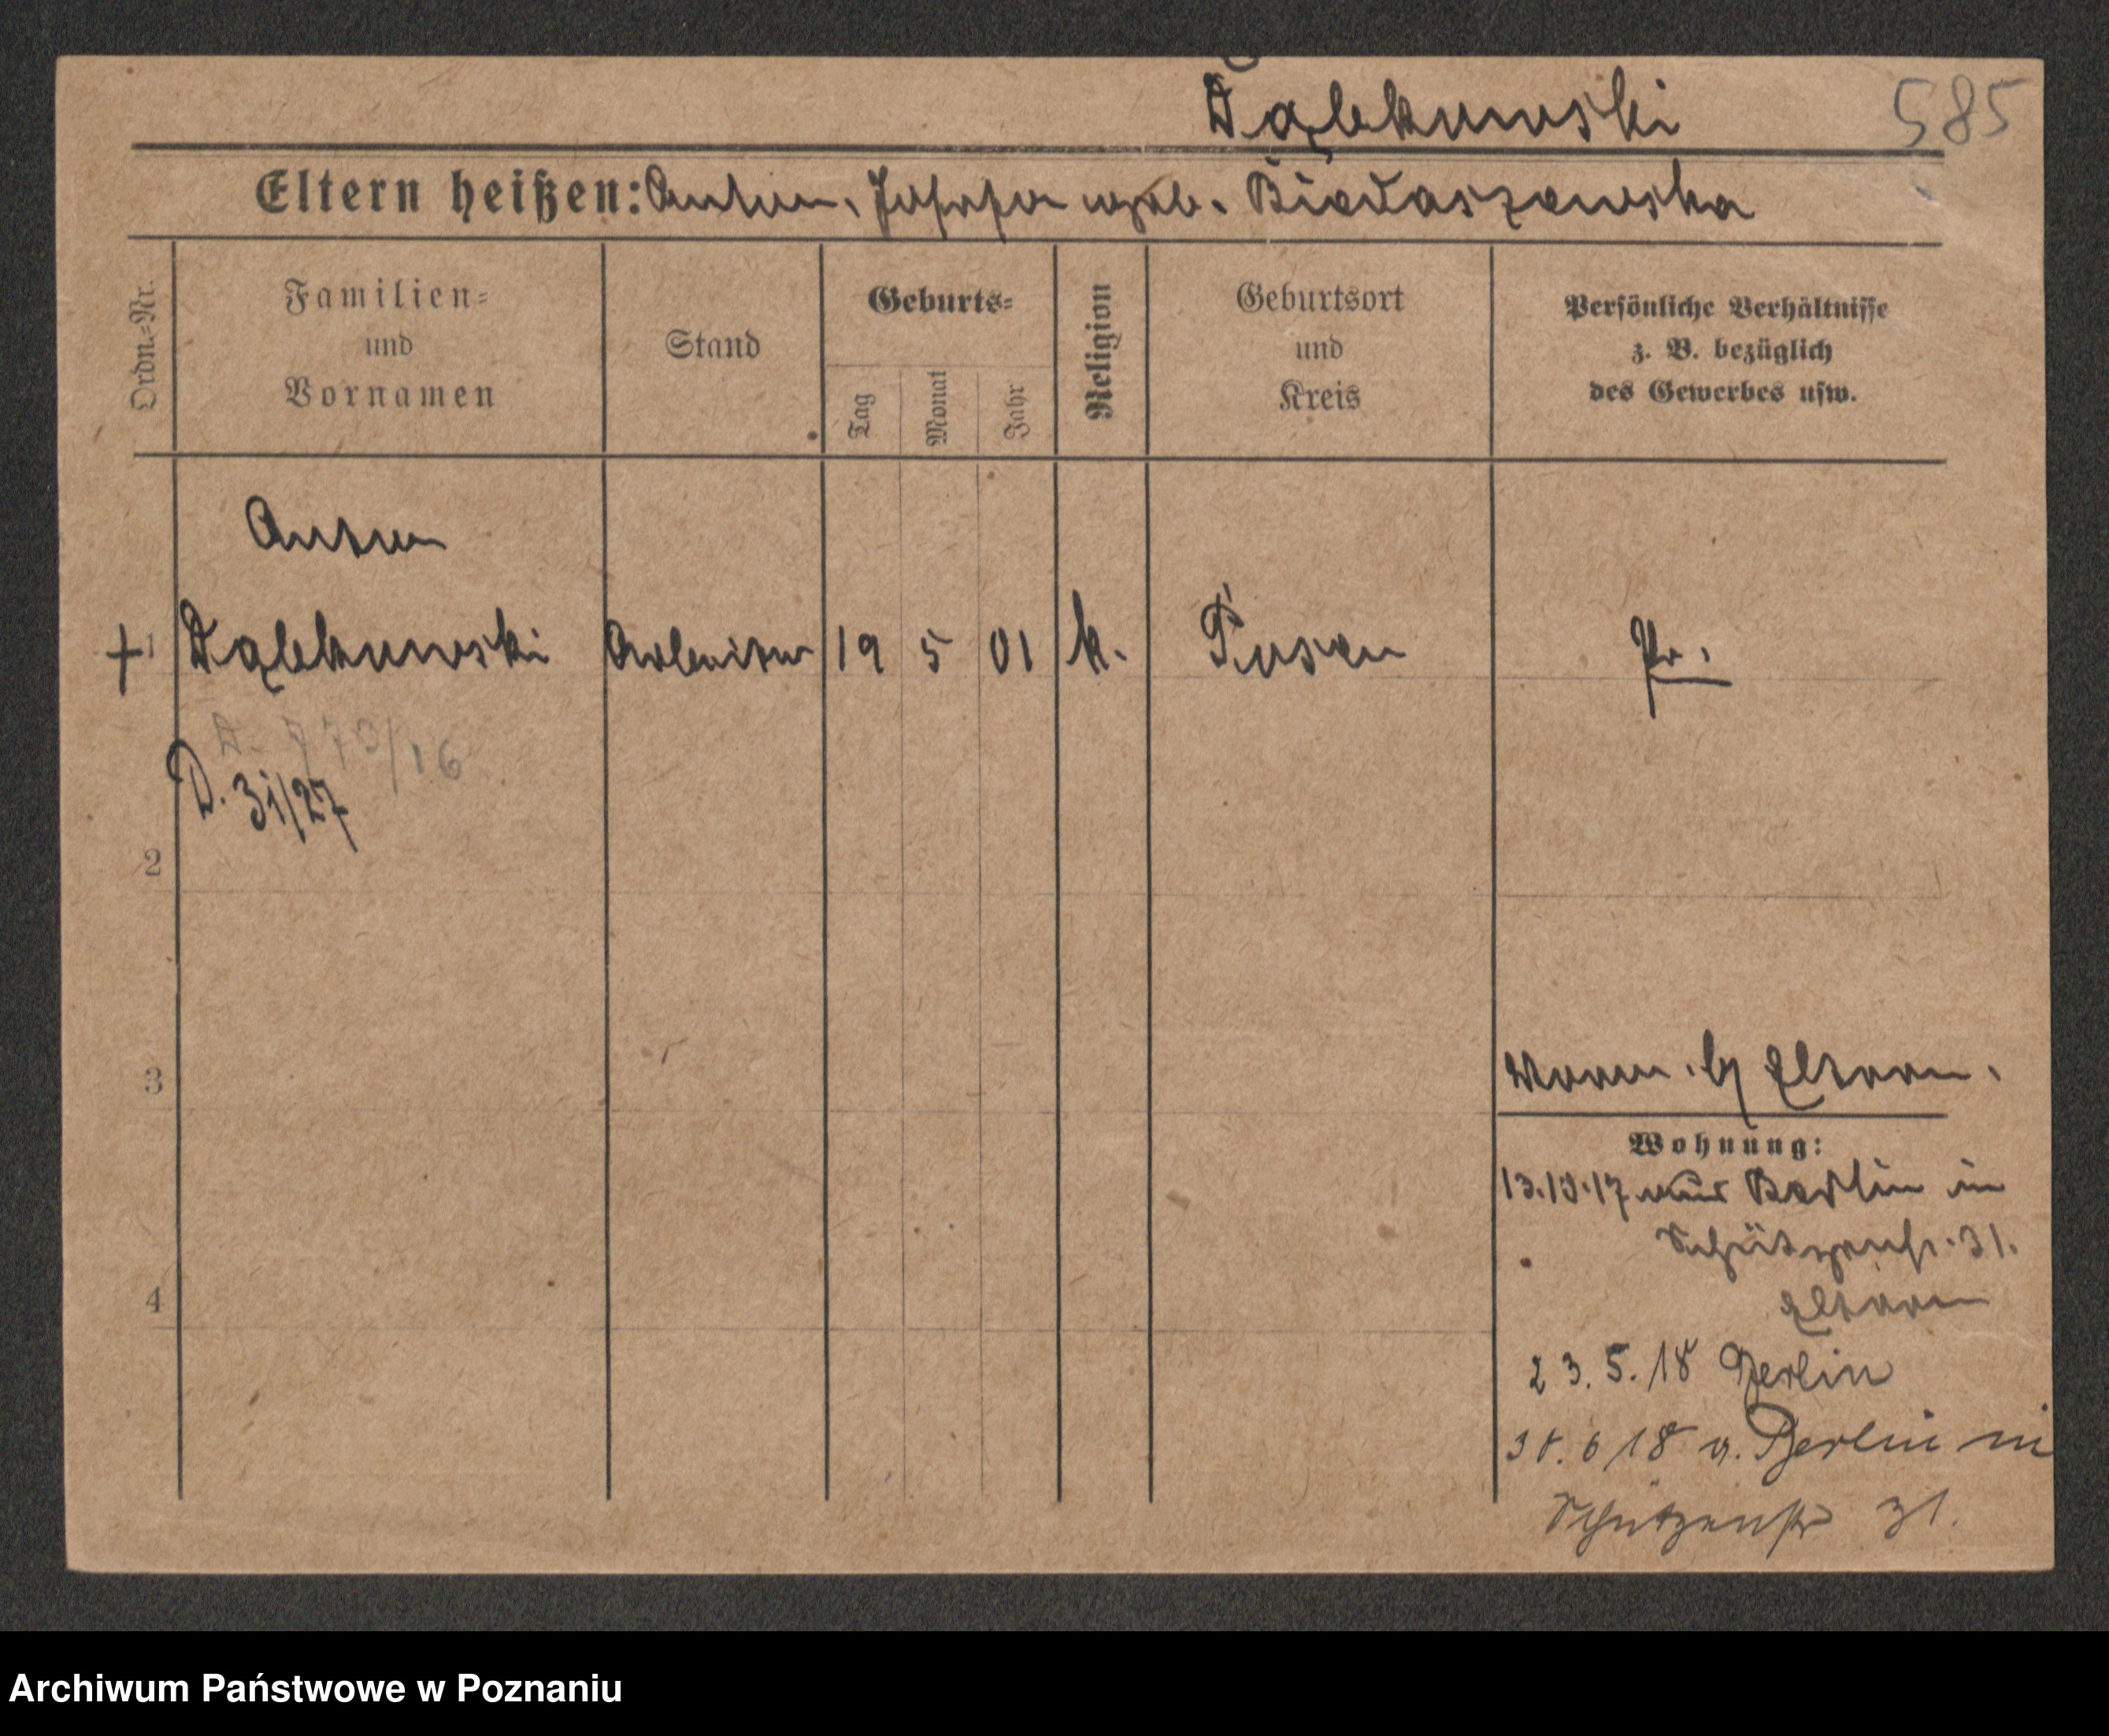 Dąbkowski 585
Eltern heißen: Anton, Josefa geb. Biadaszewska
Ordn.-Nr.
Familien-
und
Vornamen
Stand
Geburts-
Tag
Monat
Jahr
Religion
Geburtsort
und
Kreis
Persönliche Verhältnisse
z. B. bezüglich
des Gewerbes usw.
Anton
+ 1 Dąbkowski Arbeiter 19 5 01 k. Posen Pr.
D. 31/27
2
3
b/ Eltern.
Wohnung:
13.10.17 aus Berlin in
Schützenstr. 31.
Eltern
4
23. 5. 18 Berlin
30. 6 18 v. Berlin in
Schützenstr 31.
Archiwum Państwowe w Poznaniu